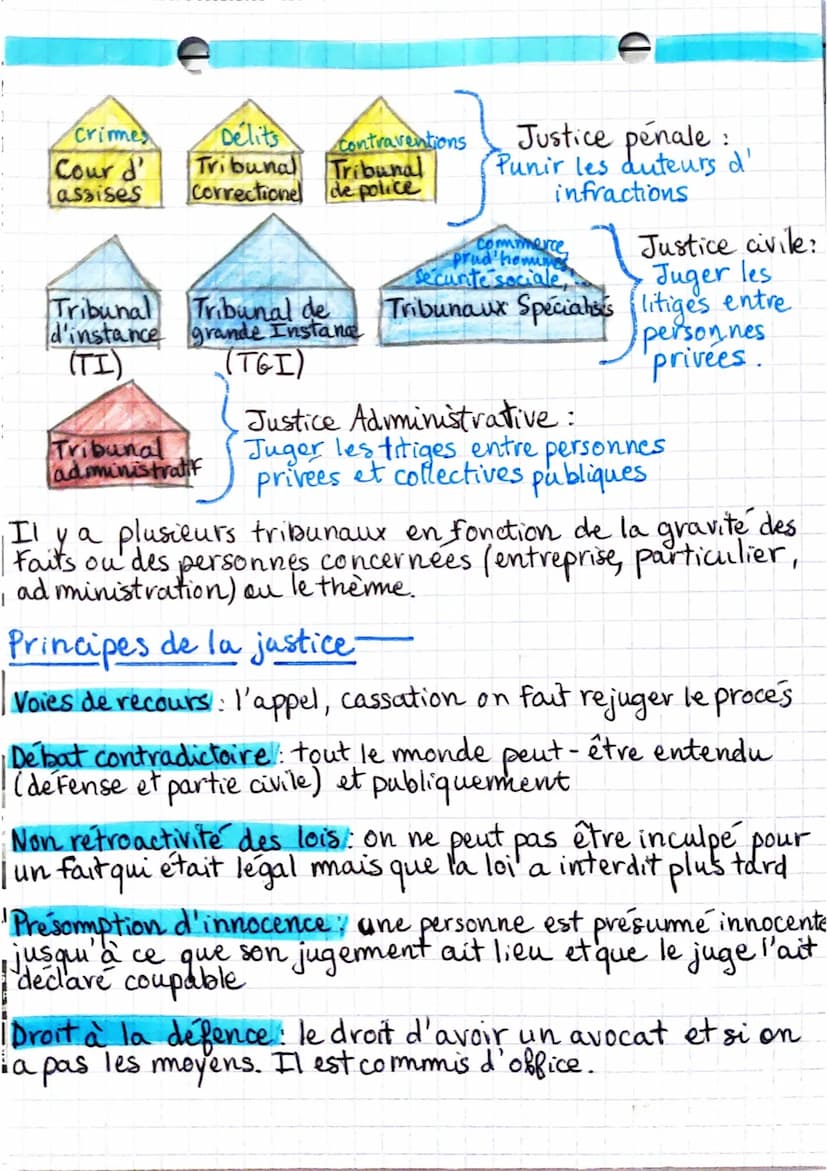 Crimes
Cour d'
assises
Délits
Tribunal
correctionel
contraventions
Tribunal
de police
Justice pénale :
Punir les auteurs d'
infractions
Tribunal
d'instance
(TI)
Tribunal de
grande Instance
(TGI)
commerce
prud'hommes,
sécurité sociale,...
Tribunaux Spécialisés
Justice civile:
Juger les
litiges entre
personnes
privées.
Tribunal
administratif
Justice Administrative :
Juger les titiges entre personnes
privées et collectives publiques
Il y a plusieurs tribunaux en fonction de la gravité des
faits ou des personnes concernées (entreprise, particulier,
administration) ou le thème.
Principes de la justice
Voies de recours : l'appel, cassation on fait rejuger le procès
Débat contradictoire : tout le monde peut-être entendu
(défense et partie civile) et publiquement
Non rétroactivité des lois : on ne peut pas être inculpé pour
un fait qui était légal mais que la loi a interdit plus tard
Présomption d'innocence : une personne est présumé innocente
jusqu'à ce que son jugement ait lieu et que le juge l'ait
déclaré coupable
Droit à la défence : le droit d'avoir un avocat et si on
a pas les moyens. Il est commis d'office.